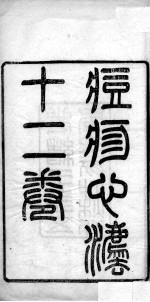 痘疹心灋
十二卷